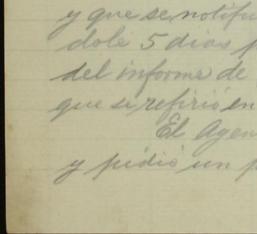 y que se notifi
dole 5 dias p
del informe de
que se refirió en
El Agen
y pidió un p